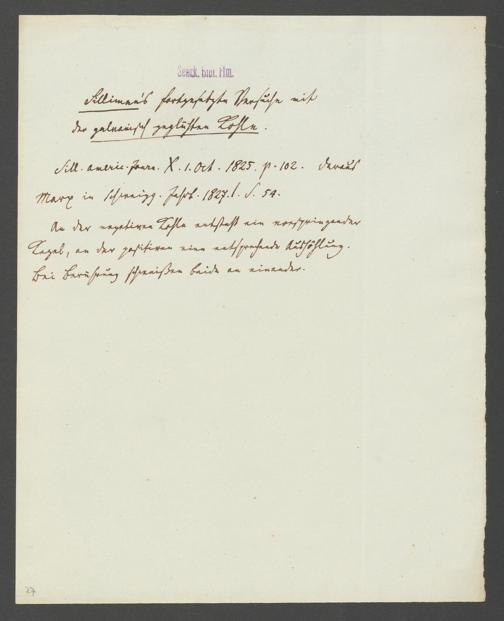 Senck. bibl. Ffm.
Silliman's fortgesetzte Versuche mit
der galvanisch geglühten Kohle.
Sill. americ. Journ. X. 1. Oct. 1825. p. 102. daraus
Marx in Schweigg. Jahrb. 1827. I. S. 54.
An der negativen Kohle entsteht ein vorspringender
Kegel, an der positiven eine entsprechende Aushöhlung.
Bei Berührung schweißen beide an einander.
27